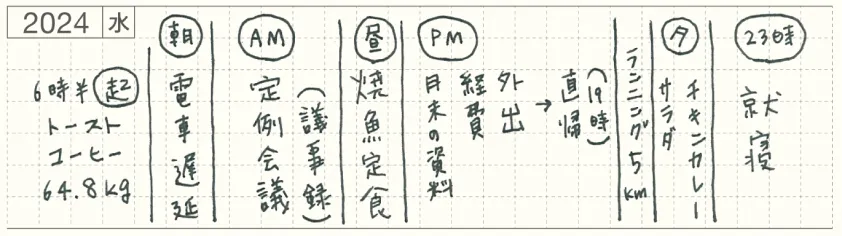 2024 水
6時半 起
トースト
コーヒー
64.8kg
朝
電車遅延
AM
定例会議
(議事録)
昼
焼魚定食
PM
月末の資料
経費
外出
→
直帰
(19時)
ランニング5km
夕
サラダ
チキンカレー
23時
就寝